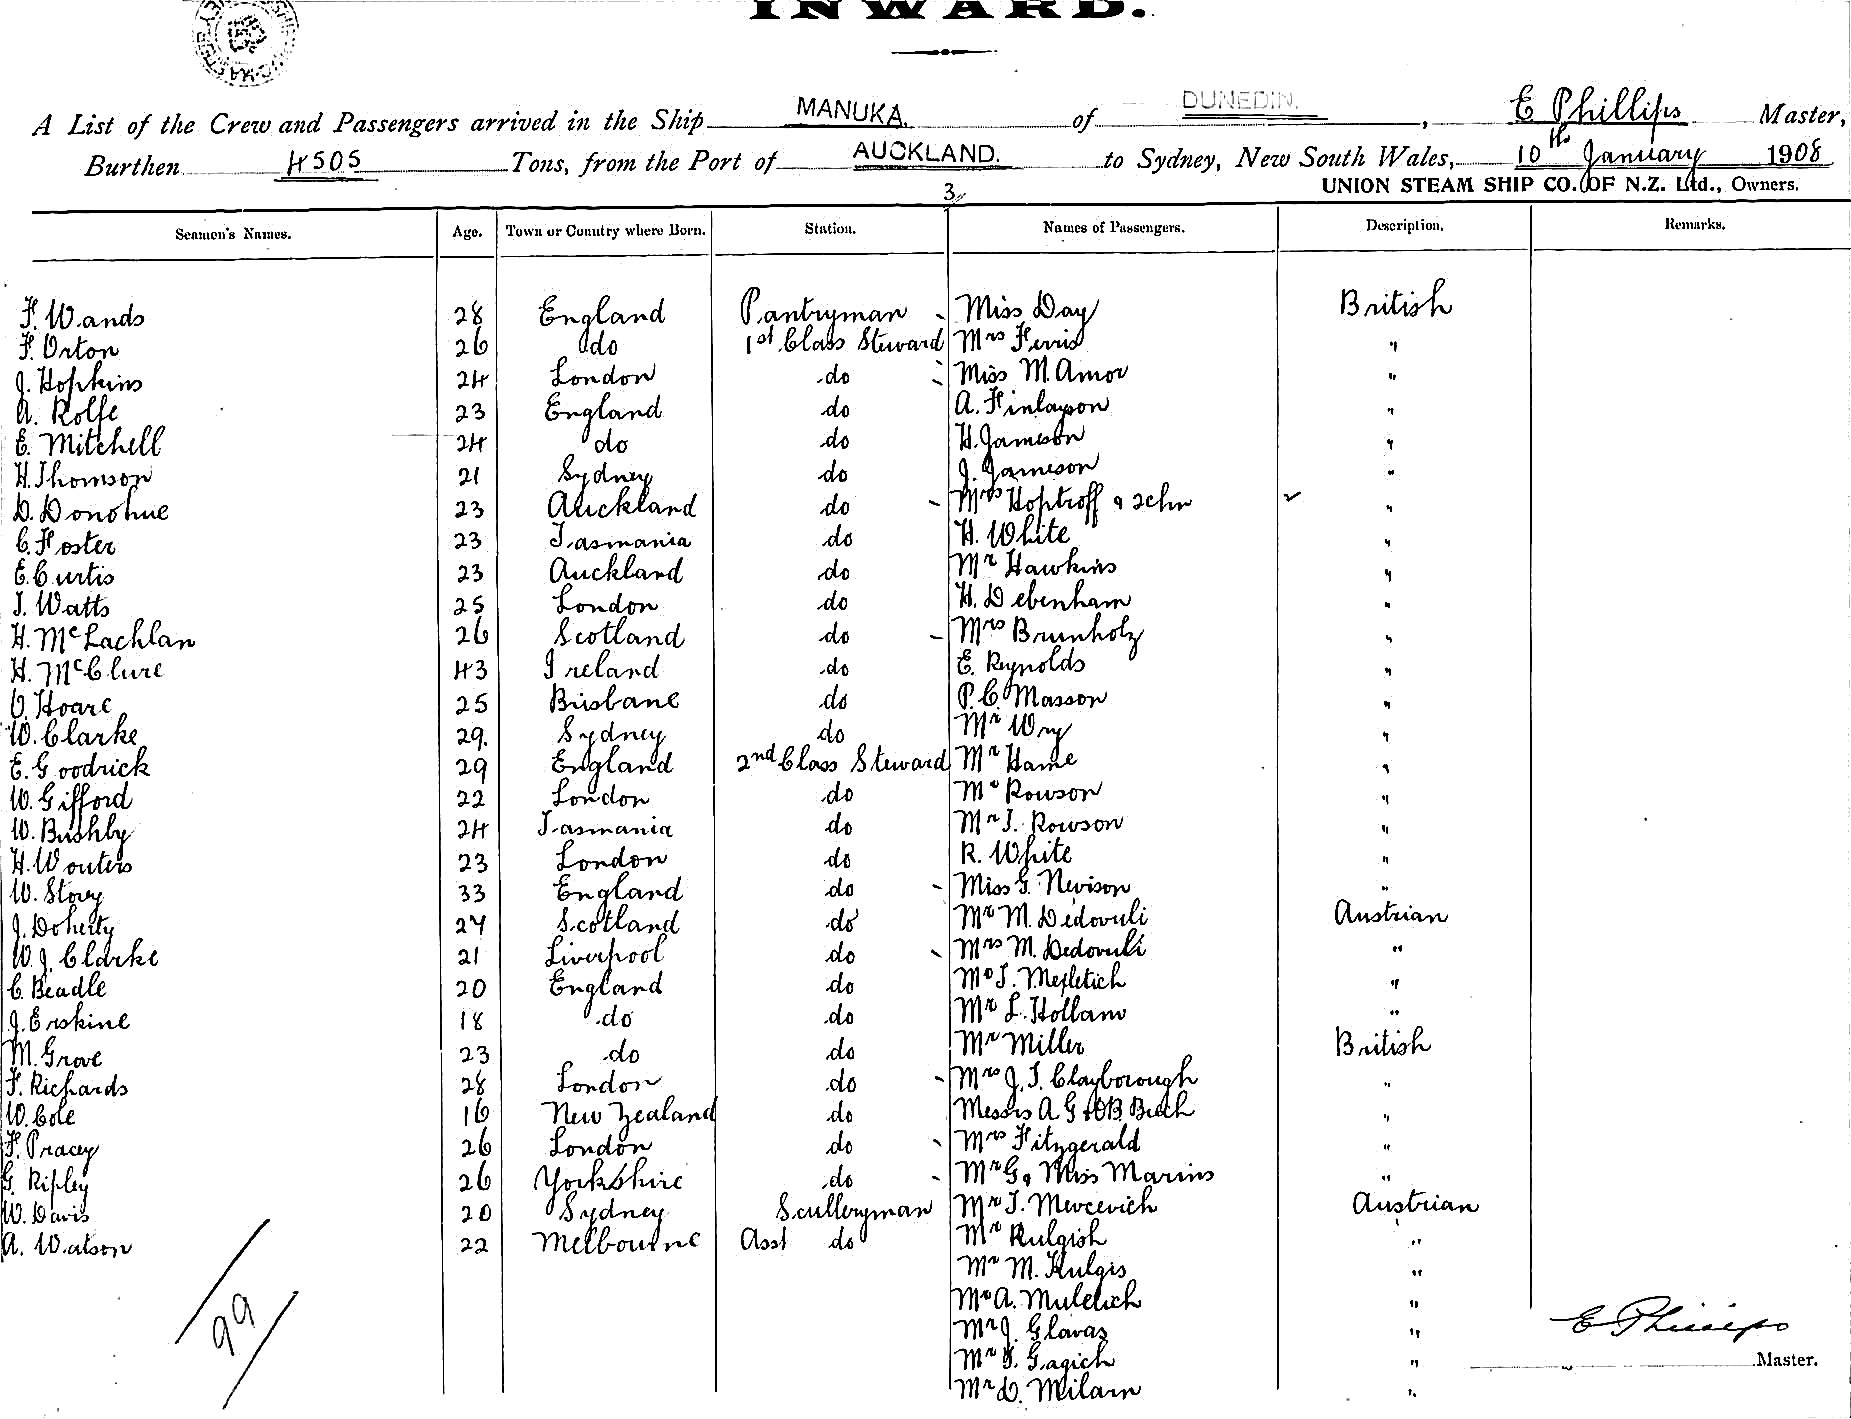 INWARD.
A List of the Crew and Passengers arrived in the Ship MANUKA. of DUNEDIN. , E Phillips Master,
Burthen 4505 Tons, from the Port of AUCKLAND. to Sydney, New South Wales, 10th January 1908
UNION STEAM SHIP CO. OF N.Z. Ltd., Owners.
3
Seamen's Names. Age. Town or Country where Born. Station. Names of Passengers. Description. Remarks.
F. Wands 28 England Pantryman - Miss Day British
F. Orton 26 do 1st Class Steward Mrs Ferris "
J. Hopkins 24 London do Miss M. Amor "
A. Rolfe 23 England do A. Finlayson "
E. Mitchell 24 do do H. Jameson "
H. Thomson 21 Sydney do J. Jameson "
D. Donohue 23 Auckland do - Mrs Hoptroff & 2 chn ✓ "
C. Foster 23 Tasmania do H. White "
E. Curtis 23 Auckland do Mr Hawkins "
J. Watts 25 London do H. Debenham "
H. McLachlan 26 Scotland do - Mrs Brunholz "
H. McClure 43 Ireland do E. Reynolds "
O. Hoare 25 Brisbane do P. C. Masson "
W. Clarke 29. Sydney do Mr Wry "
E. Goodrick 29 England 2nd Class Steward Mr Hame "
W. Gifford 22 London do Mr Rowson "
W. Bushby 24 Tasmania do Mr J. Rowson "
H. Wouters 23 London do R. White "
W. Storey 33 England do - Miss G. Nevison "
J. Doherty 24 Scotland do Mr M. Dedovuli Austrian
W. J. Clarke 21 Liverpool do - Mrs M. Dedovuli "
C. Beadle 20 England do Mr J. "
J. Erskine 18 do do Mr L. Hollam "
M. Grove 23 do do Mr Miller British
F. Richards 28 London do - Mrs J. T. Clayborough "
W. Cole 16 New Zealand do Messrs A G & OB "
F. Pracey 26 London do - Mrs Fitzgerald "
G. Ripley 26 Yorkshire do - Mr G & Miss Marins "
W. Davis 20 Sydney Sculleryman Mr J. Mercevich Austrian
A. Watson 22 Melbourne Asst do Mr Rulgish "
Mr M. Kulgis "
Mr A. Muletich "
Mr J. Glavas "
Mr Gagich "
Mr D. Milarn "
99
E Phillips
Master.